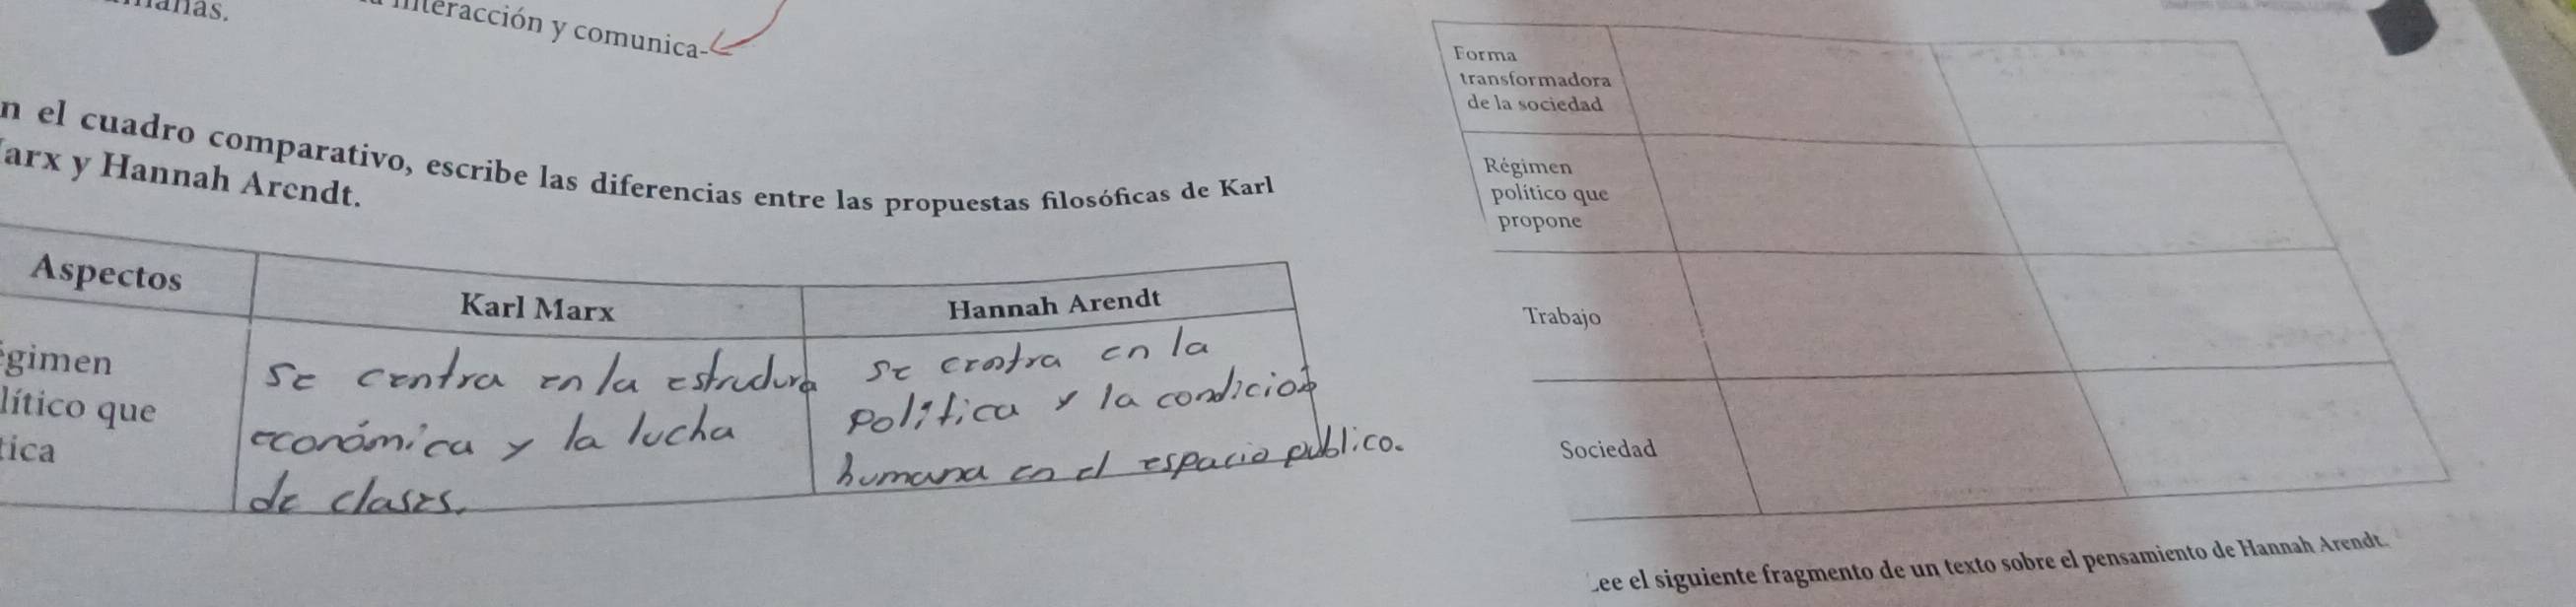 interacción y comunica-
n el cuadro comparativo, escribe las diferencias entre las propuestas filosóficas de Karl
arx y Hannah Arendt.
Aspectos
Karl Marx
Hannah Arendt
gimen
lítico que
tica
se centra en la estructura
económica y la lucha
de clases.
se centra en la
política y la condición
humana en el espacio publico.
Forma
transformadora
de la sociedad
Régimen
político que
propone
Trabajo
Sociedad
ee el siguiente fragmento de un texto sobre el pensamiento de Hannah Arendt.